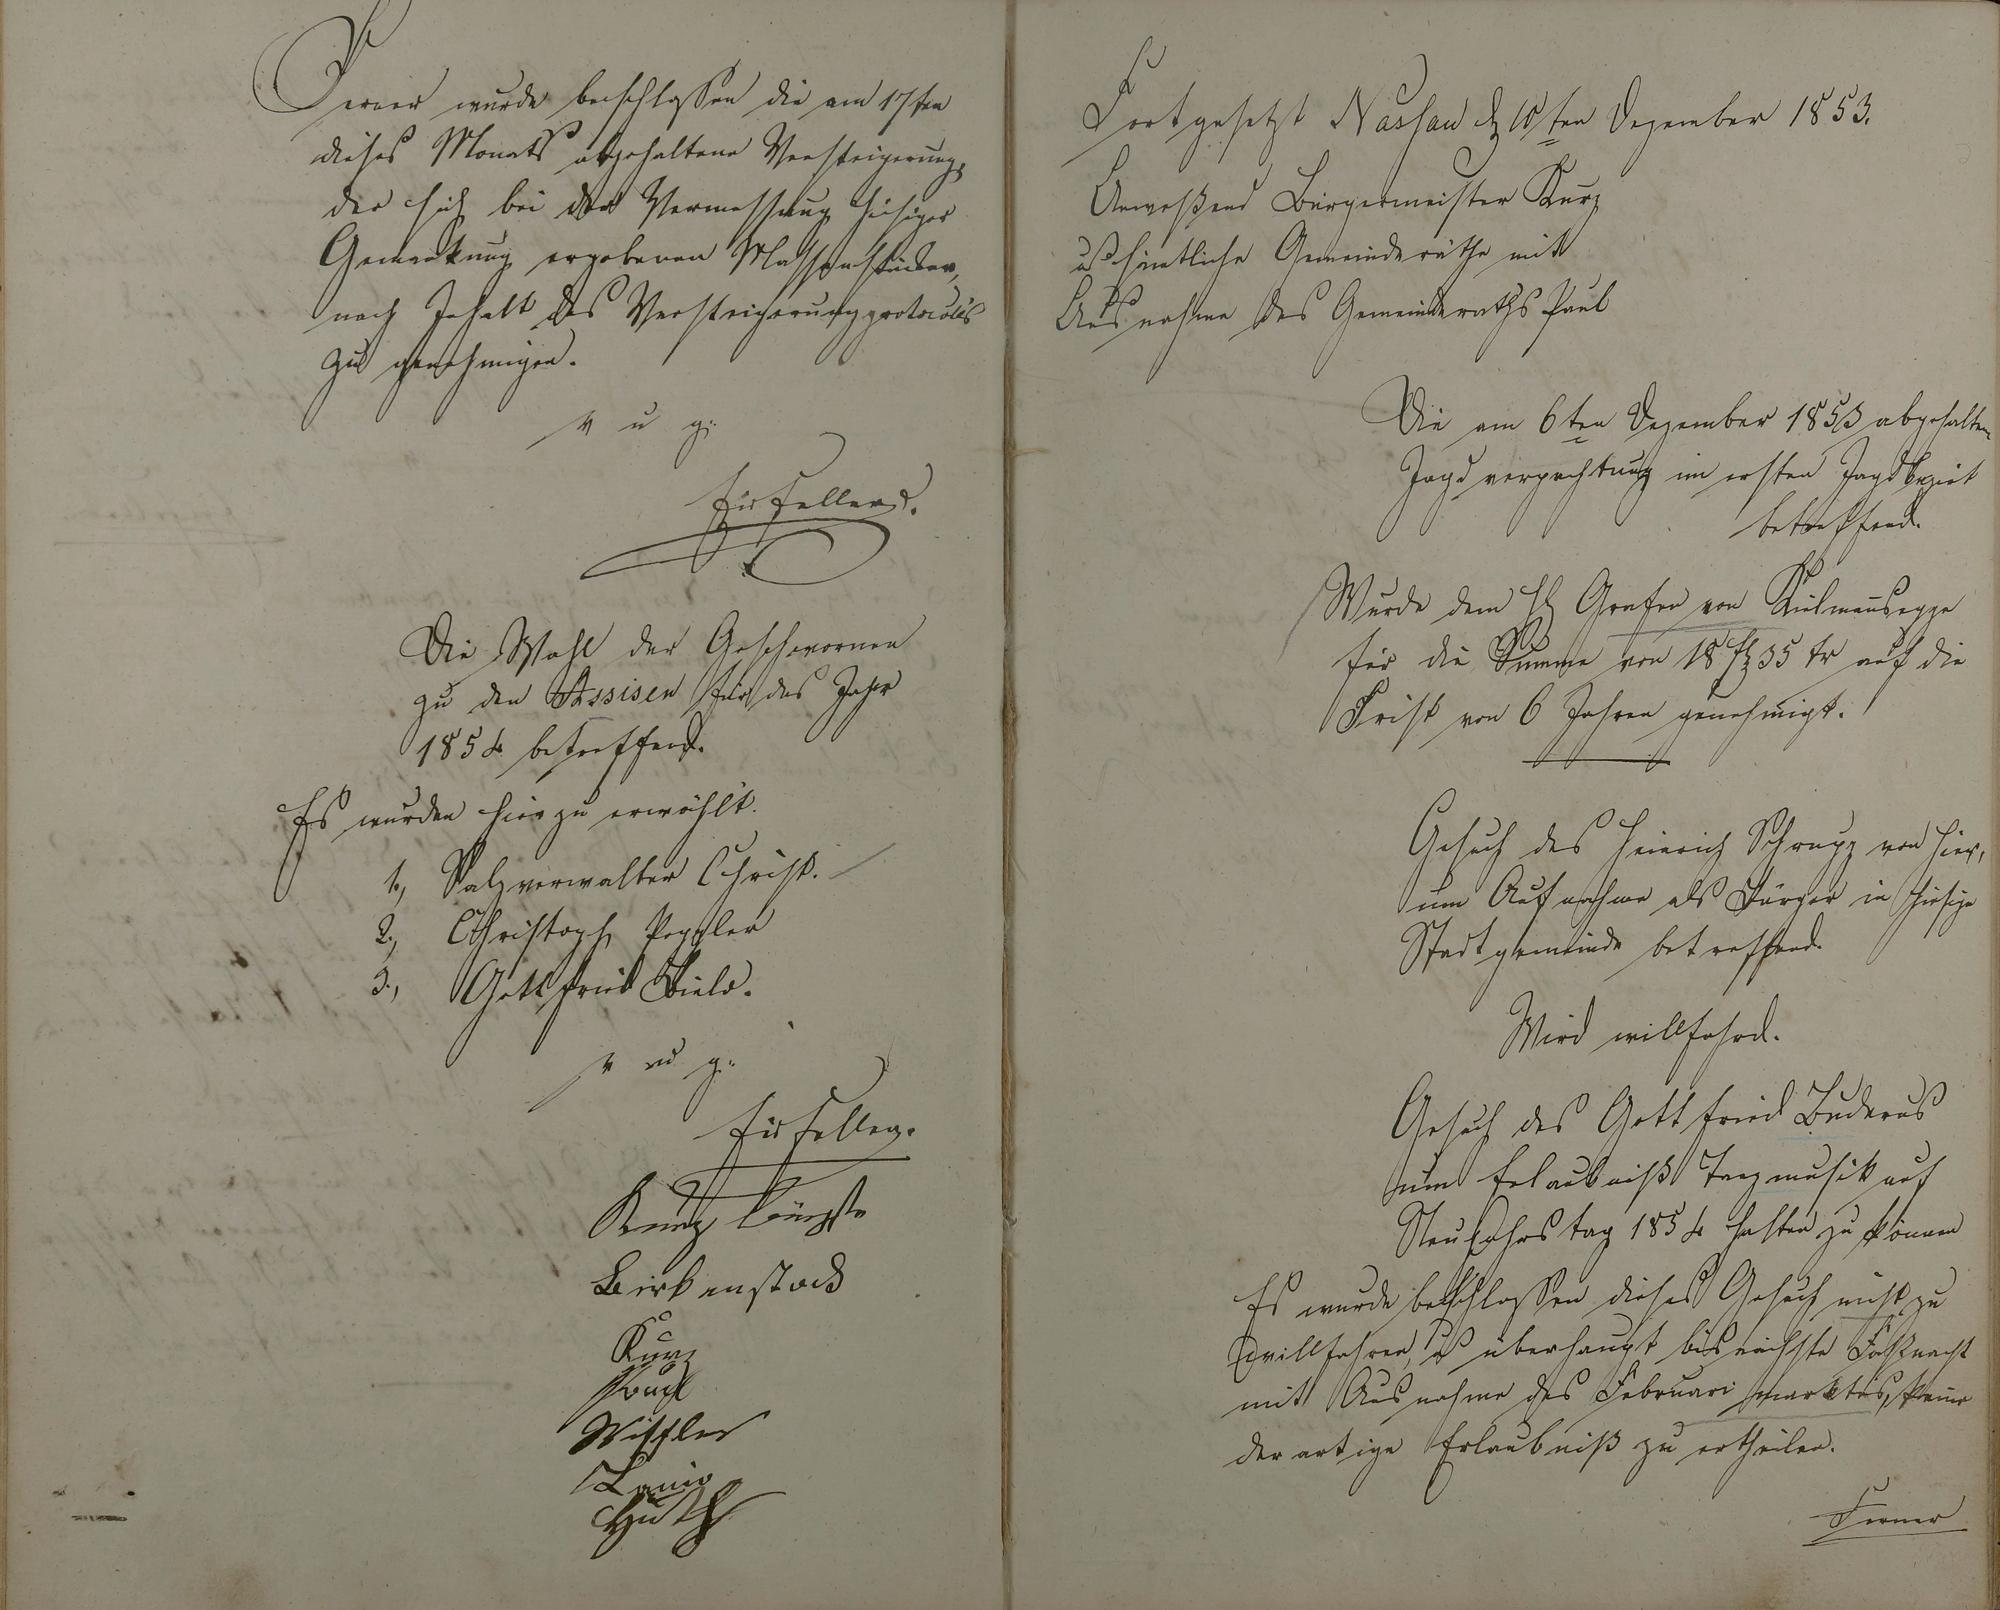 Ferner wurde beschlossen die am 17ten
dieses Monats abgehaltene Versteigerung,
der sich bei der Vermessung hiesiger
Gemarkung ergebenen Massenstücker,
nach Inhalt des Versteigerungsprotocolls
zu genehmigen.
v u g:
Die Wahl der Geschwornen
zu den Assisen für das Jahr
1854 betreffend.
Es wurden hierzu erwählt.
1., Salzverwalter Christ.
2., Christoph Peppler
3., Gottfried Bielo.
v u g:
Kurz Bürgstr
Birkenstock
Kurz
Paul
Wißler
Huth
Fortgesetzt Nassau d 10ten Dezember 1853.
Anweßend Bürgermeister Kurz
u sämtliche Gemeinderäthe mit
Ausnahme des Gemeinderaths Paul
Die am 6ten Dezember 1853 abgehaltene
Jagdverpachtung im ersten Jagdbezirk
betreffend.
Wurde dem H Grafen von Kielmansegge
für die Summe von 18 fl 35 kr auf die
Frist von 6 Jahren genehmigt.
Gesuch des Heinrich Schrupp von hier,
um Aufnahme als Bürger in hiesige
Stadtgemeinde betreffend.
Wird willfahrd.
Gesuch des Gottfried Buderus
um Erlaubniß Tanzmusik auf
Neujahrstag 1854 halten zu können
Es wurde beschlossen dieses Gesuch nicht zu
willfahren, u überhaupt bis nächste Faßnacht
mit Ausnahme des Februari marktes, keine
derartige Erlaubniß zu ertheilen.
Ferner